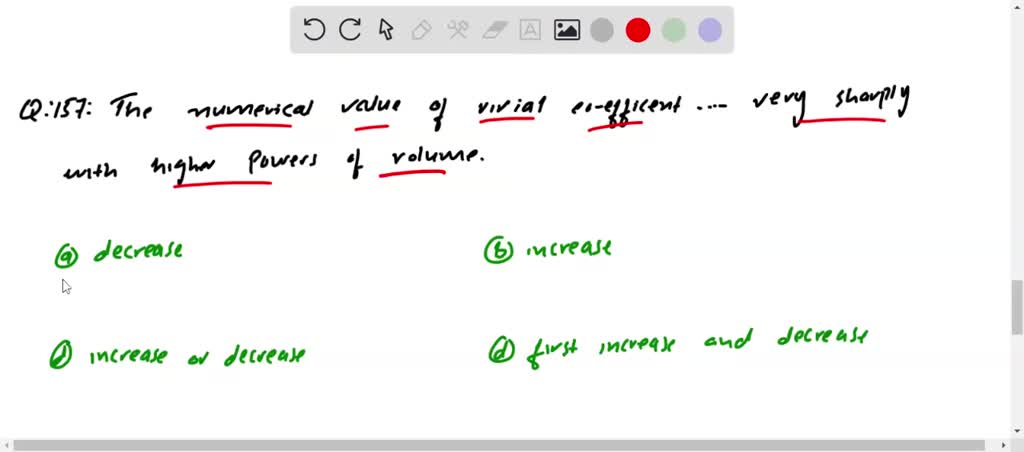 Q:157: The numerical value of virial co-efficent .... very sharply
with higher powers of volume.
ⓐ decrease
ⓑ increase
ⓓ increase or decrease
ⓓ first increase and decrease